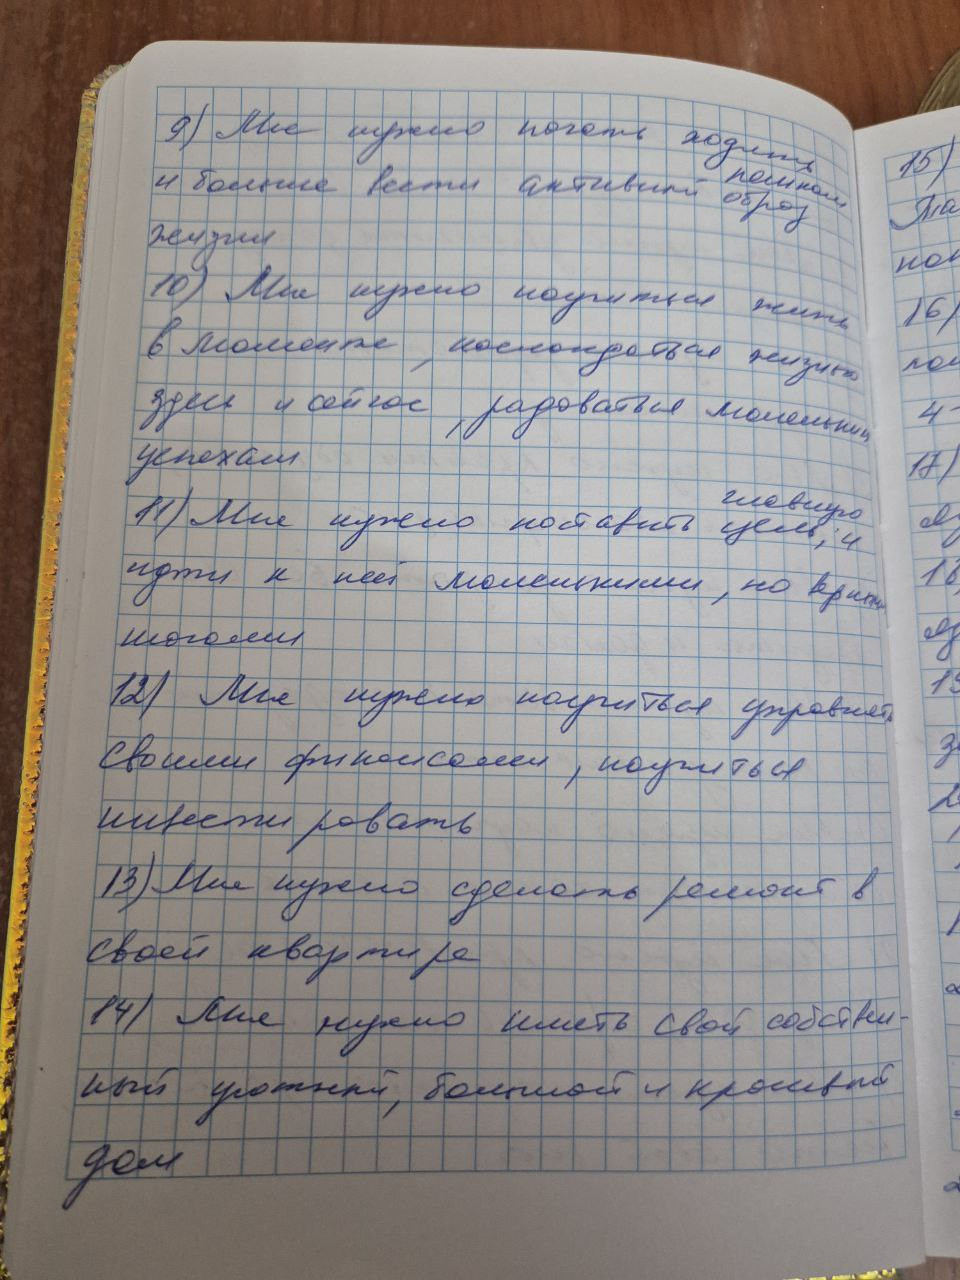 9) Мне нужно начать ходить
пешком
и больше вести активный образ
жизни
10) Мне нужно научиться жить
в моменте, наслаждаться жизнью
здесь и сейчас, радоваться маленьким
успехам
главную
11) Мне нужно поставить цель, и
идти к ней маленькими, но
шагами
12) Мне нужно научиться управлять
своими финансами, научиться
инвестировать
13) Мне нужно сделать ремонт в
своей квартире
14) Мне нужно иметь свой собствен-
ный уютный, большой и красивый
дом
15)
16)
4-
17)